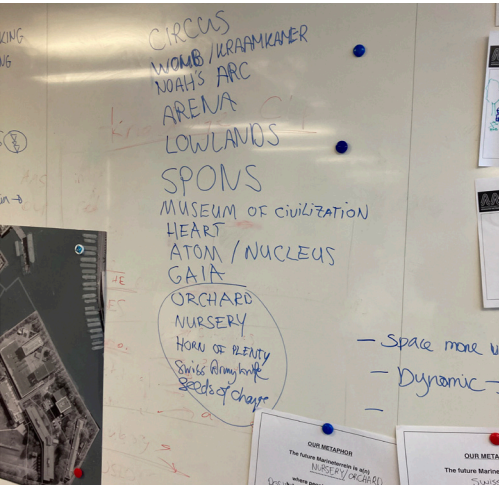 CIRCUS
WOMB/KRAAMKANER
NOAH'S ARC
ARENA
LOWLANDS
SPONS
MUSEUM OF CIVILIZATION
HEART
ATOM / NUCLEUS
GAIA
ORCHARD
NURSERY
HORN OF PLENTY
Swiss Army knife
Seeds of change
- Space more
- Dynamic →
-
OUR METAPHOR
The future Marineterrein is a(n)
NURSERY/ORCHARD
where
OUR META
The future Marine
SWISS